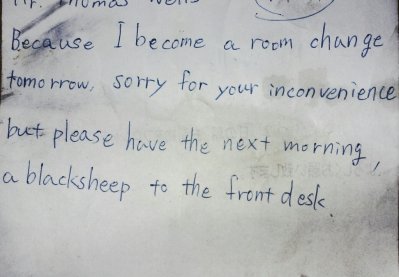 Because I become a room change
tomorrow, sorry for your inconvenience
but please have the next morning,
a blacksheep to the front desk.